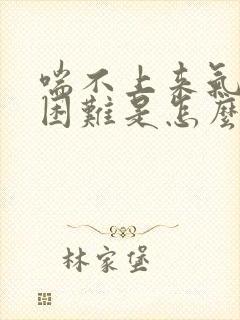 喘不上来氣
困難是怎麼
林家堡